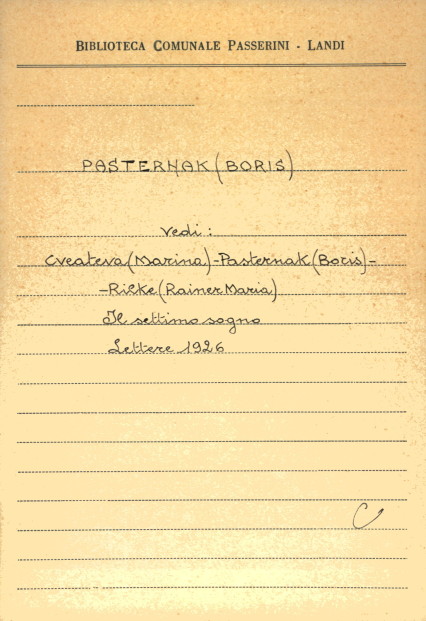 BIBLIOTECA COMUNALE PASSERINI - LANDI
PASTERNAK (BORIS)
Vedi :
Cveateva (Marina) - Pasternak (Boris) -
- Rilke (Rainer Maria)
Il settimo sogno
Lettere 1926
C